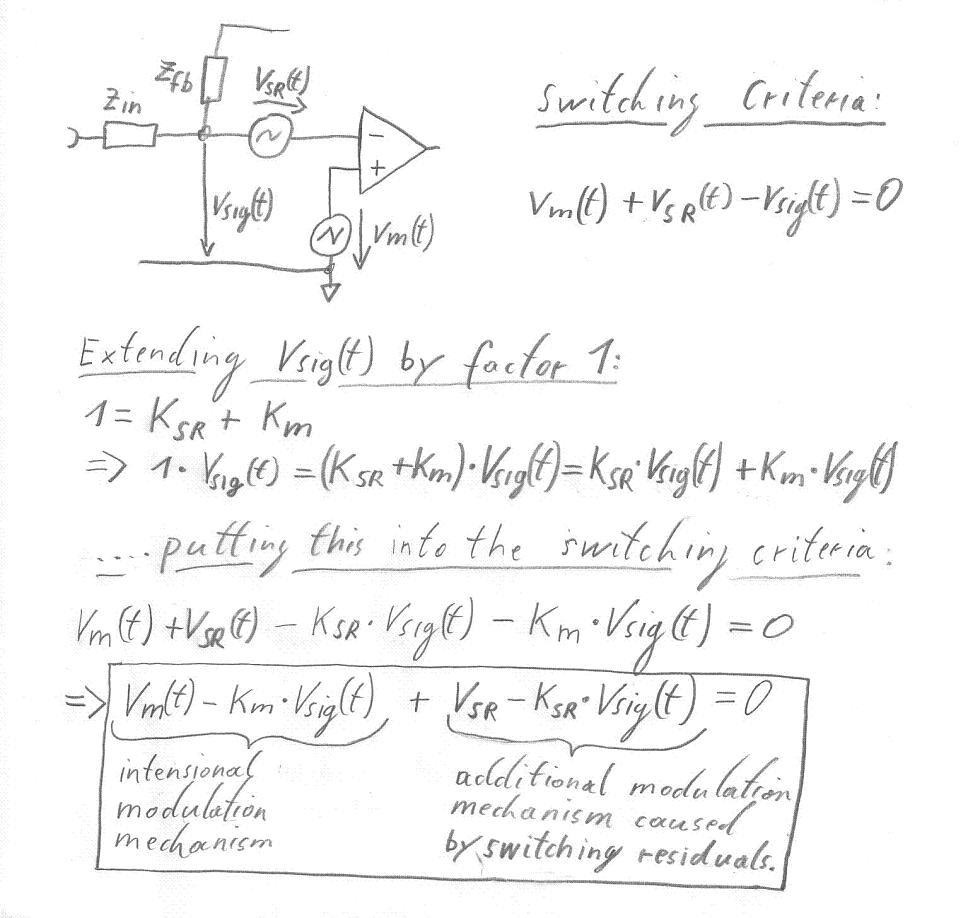 Zfb
VSR(t)
Zin
-
+
Vsig(t)
Vm(t)
Switching Criteria:
Vm(t) + VSR(t) - Vsig(t) = 0
Extending Vsig(t) by factor 1:
1 = KSR + Km
=> 1 · Vsig(t) = (KSR + Km) · Vsig(t) = KSR · Vsig(t) + Km · Vsig(t)
.... putting this into the switching criteria:
Vm(t) + VSR(t) - KSR · Vsig(t) - Km · Vsig(t) = 0
=> Vm(t) - Km · Vsig(t) + VSR - KSR · Vsig(t) = 0
intensional
modulation
mechanism
additional modulation
mechanism caused
by switching residuals.